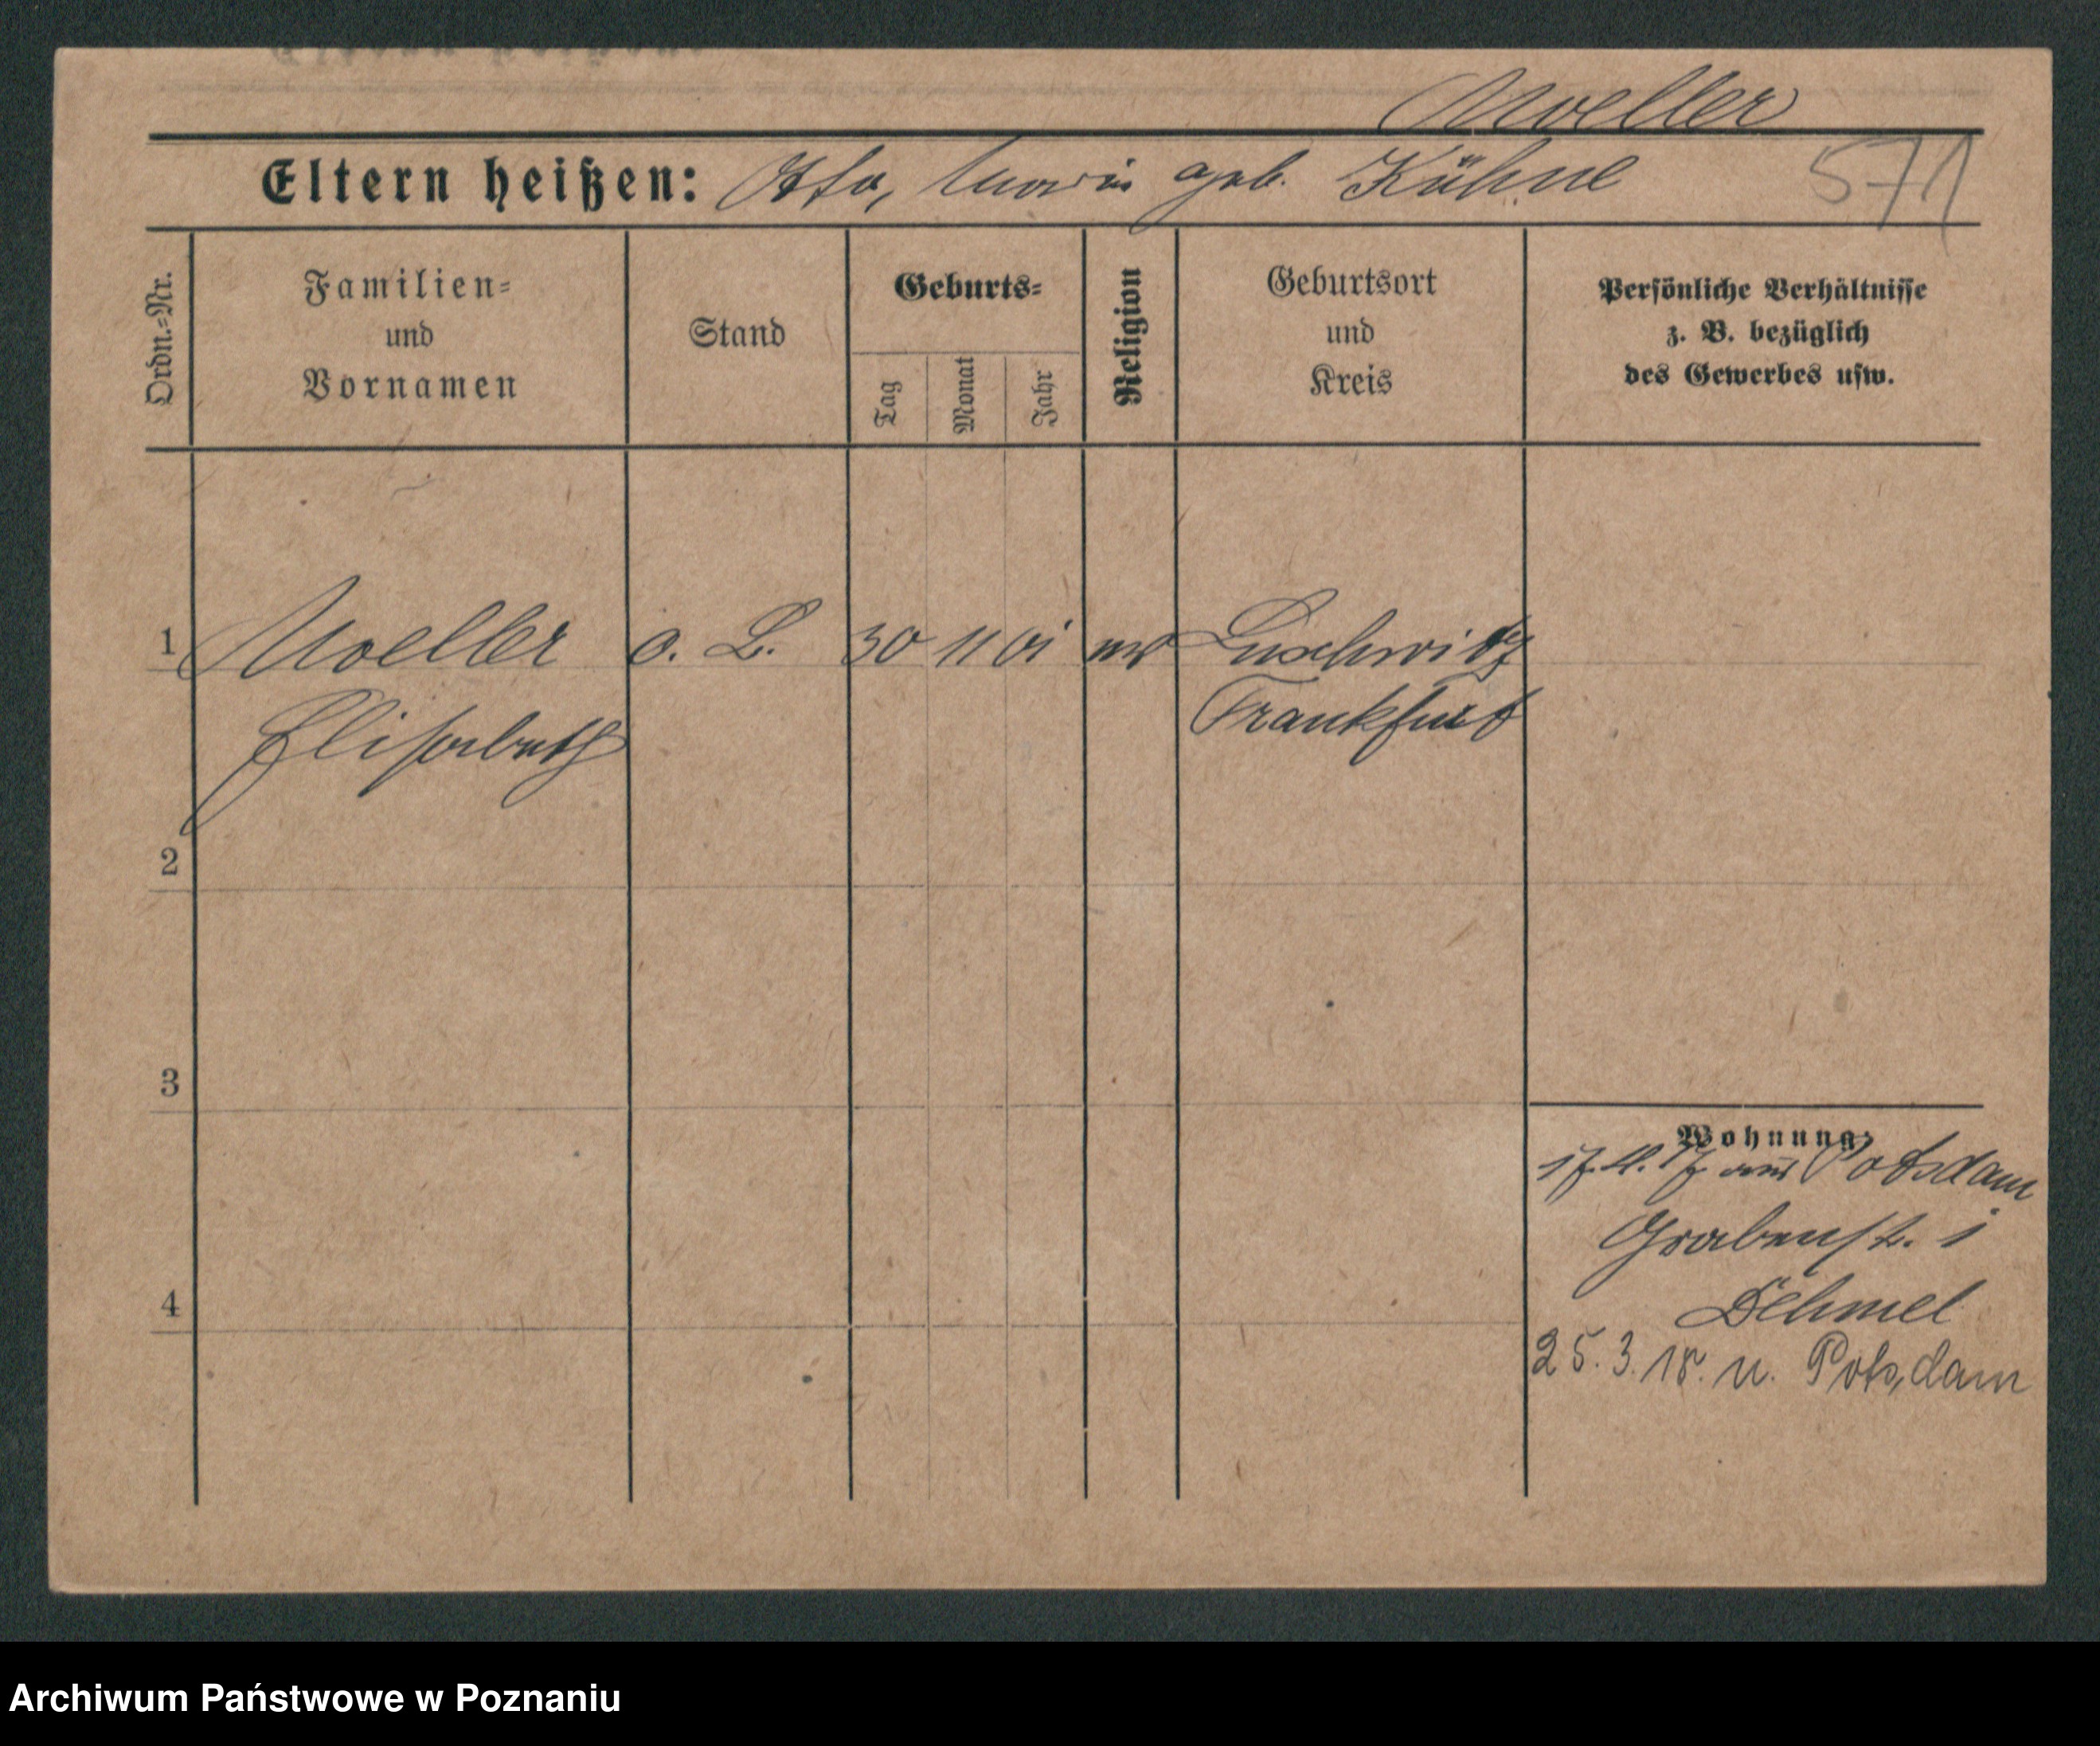 Moeller
Eltern heißen: Otto, Marie geb. Kühne 571
Ordn.-Nr.
Familien-
und
Vornamen
Stand
Geburts-
Tag
Monat
Jahr
Religion
Geburtsort
und
Kreis
Persönliche Verhältnisse
z. B. bezüglich
des Gewerbes usw.
1 Moeller o. B. 30 11 01 Luschwitz
Elisabeth Frankfurt
2
3
4
Wohnung:
17. 4. 17 aus Potsdam
Grabenst. 1
Dehmel
25. 3. 18. n. Potsdam
Archiwum Państwowe w Poznaniu